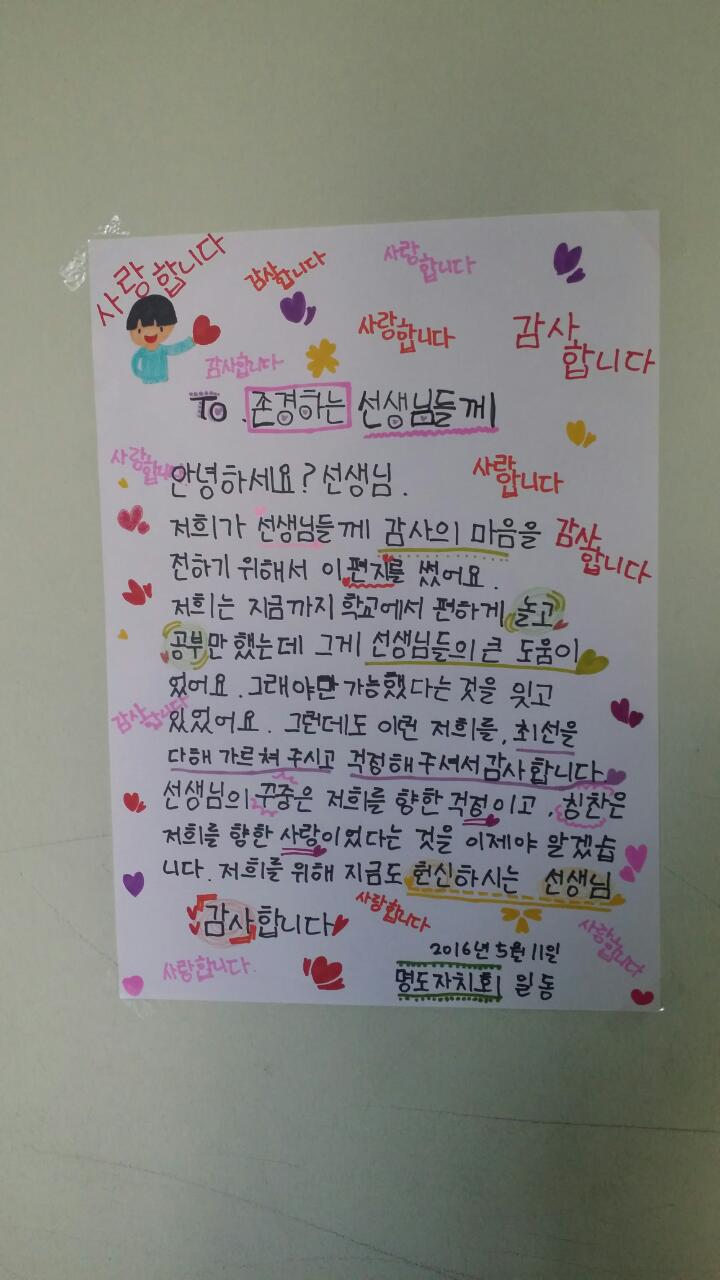 사랑합니다
감사합니다
사랑합니다
사랑합니다
감사합니다
감사합니다
To. 존경하는 선생님들께
사랑합니다
안녕하세요? 선생님.
사랑합니다
저희가 선생님들께 감사의 마음을
감사합니다
전하기 위해서 이 편지를 썼어요.
저희는 지금까지 학교에서 편하게 놀고
공부만 했는데 그게 선생님들의 큰 도움이
었어요. 그래야만 가능했다는 것을 잊고
감사합니다
있었어요. 그런데도 이런 저희를, 최선을
다해 가르쳐 주시고 걱정해 주셔서 감사합니다.
선생님의 꾸중은 저희를 향한 걱정이고, 칭찬은
저희를 향한 사랑이었다는 것을 이제야 알겠습
니다. 저희를 위해 지금도 헌신하시는 선생님
감사합니다
사랑합니다
사랑합니다
2016년 5월 11일
사랑합니다.
명도자치회 일동